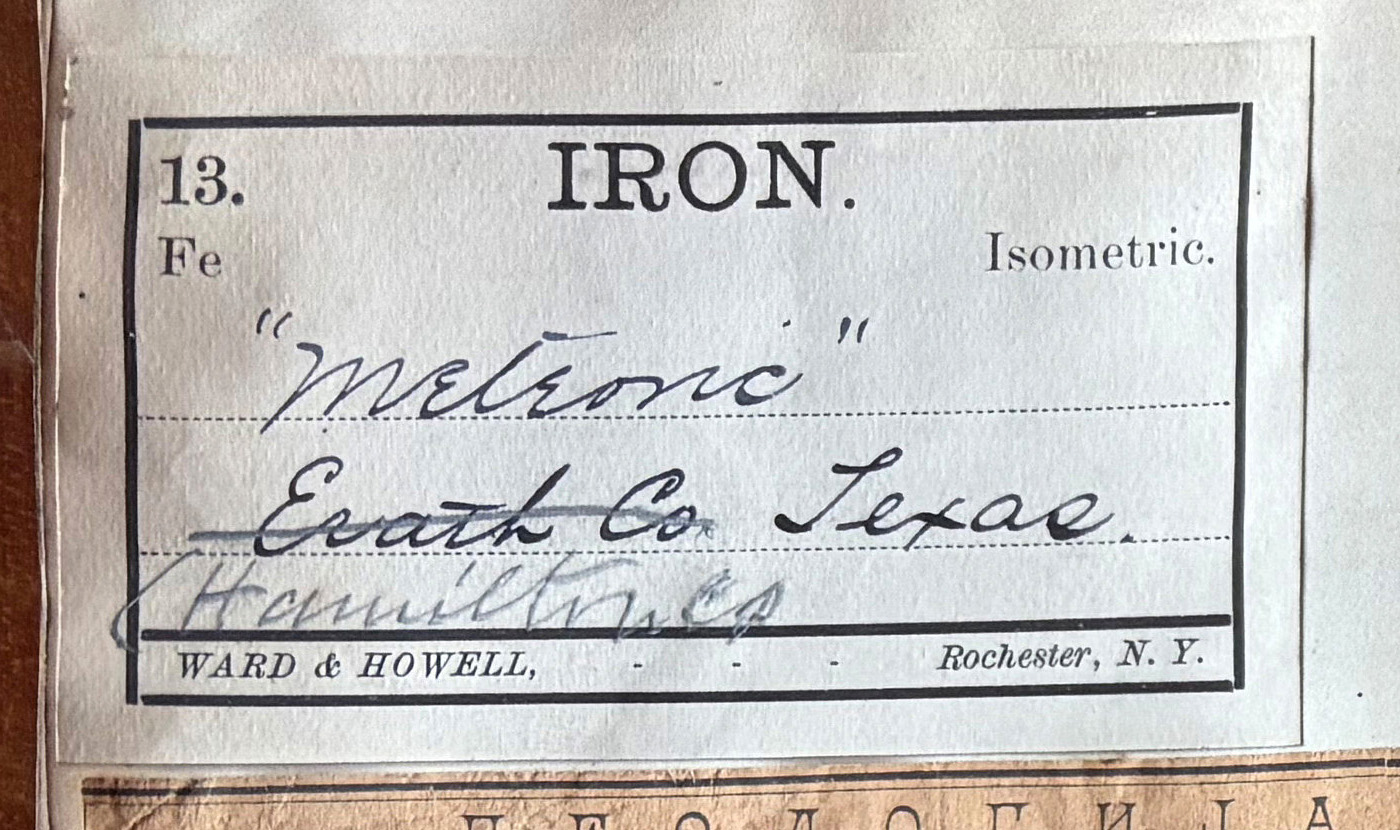 13. IRON.
Fe Isometric.
"Meteoric"
Erath Co. Texas.
Hamilton Co
WARD & HOWELL, - - - Rochester, N. Y.
ГЕОЛОГИЈА